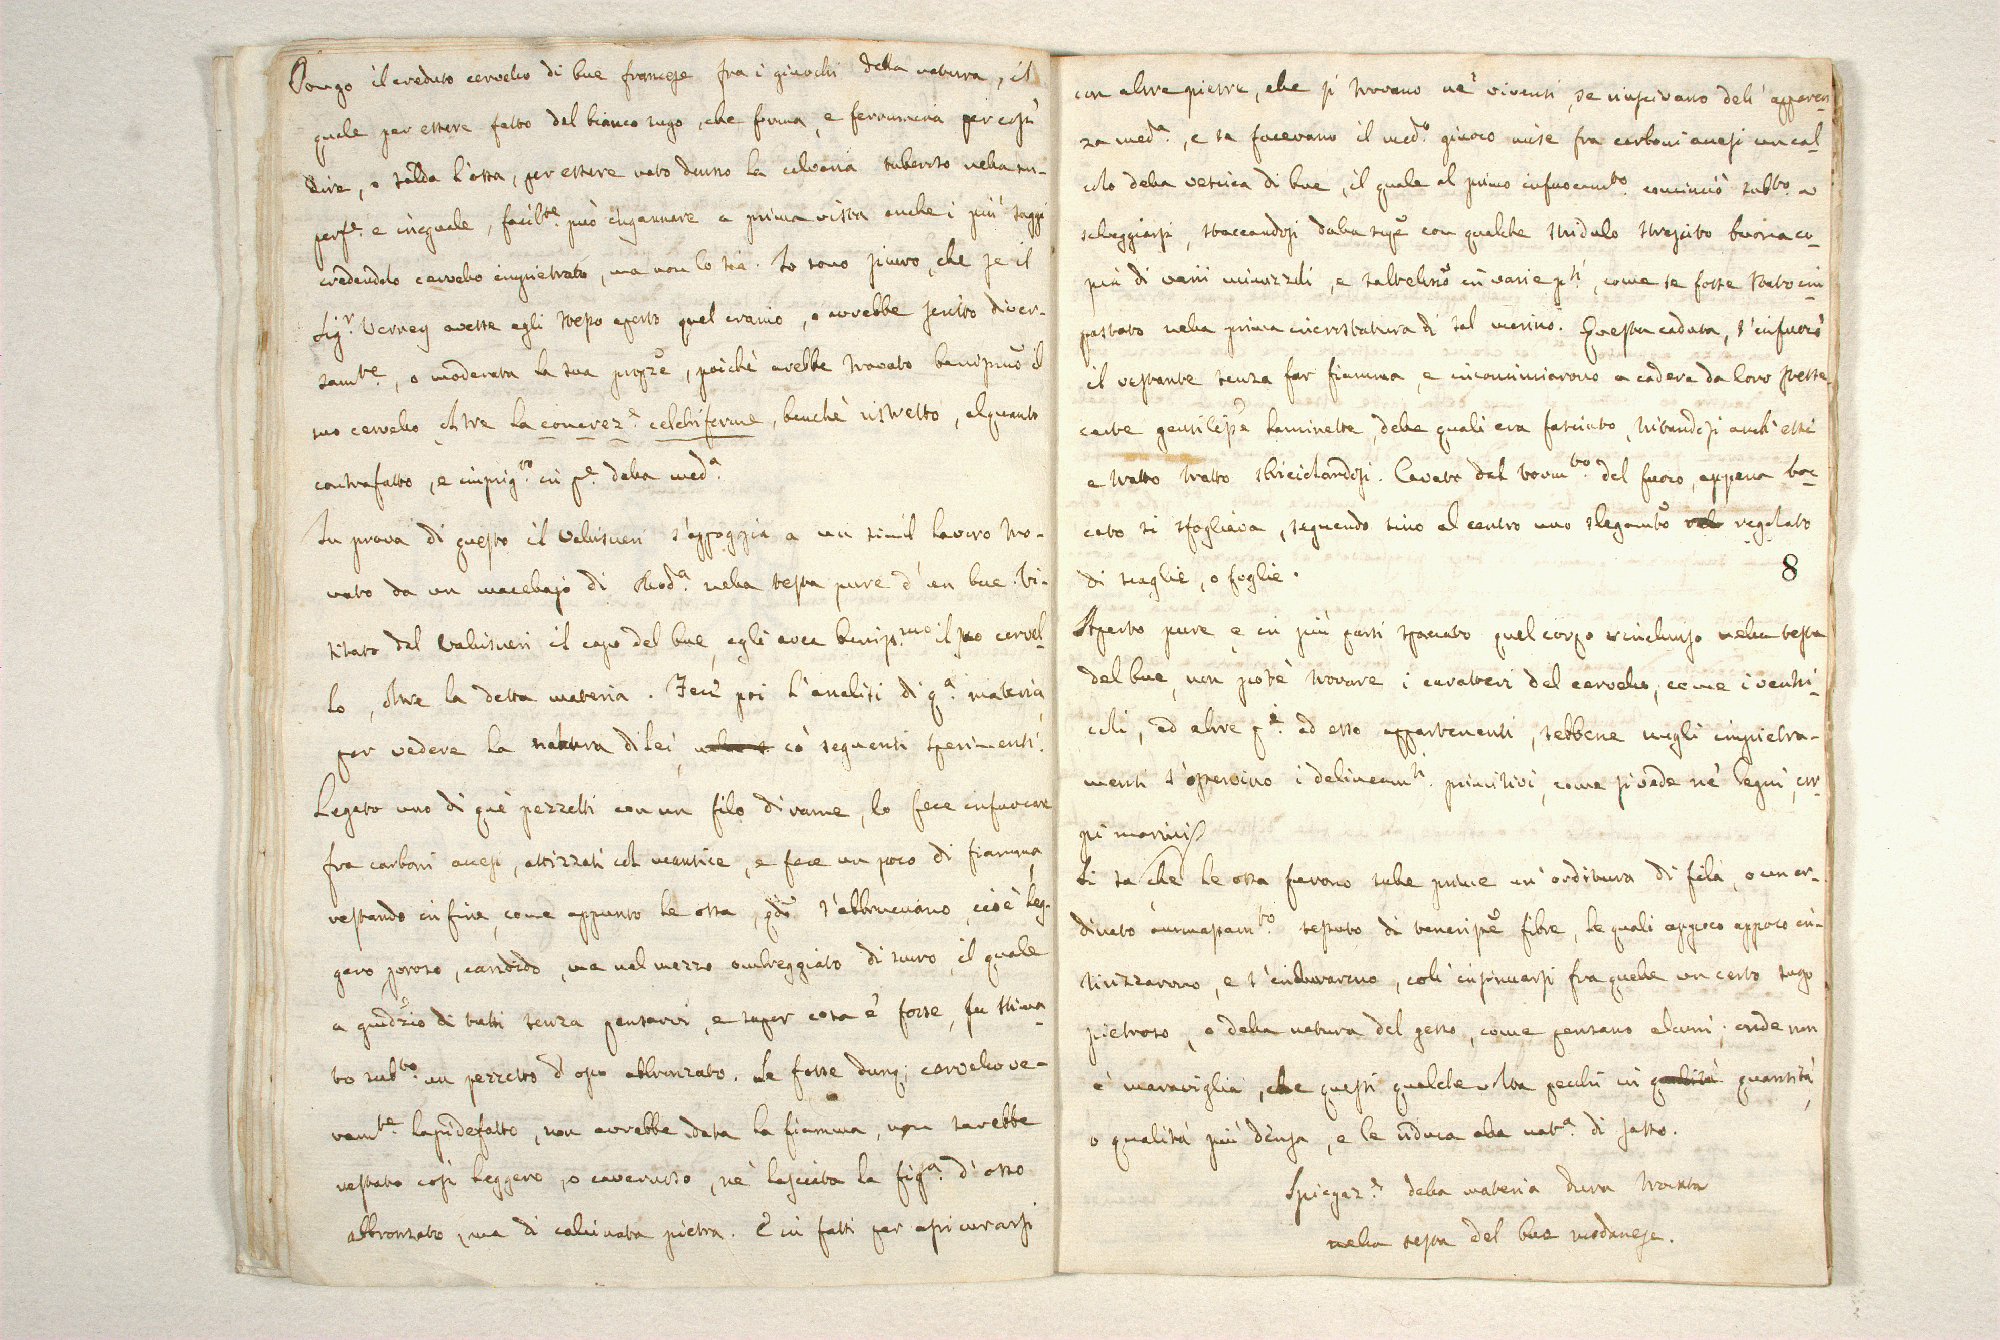 Pongo il creduto cervello di bue francese fra i giuochi della natura, il
quale per essere fatto dal bianco sugo, che forma, e ferrumina per così
dire, o salda l'ossa, per essere nato dentro la calvaria suberoso nella su-
perf.e e ineguale, facil.te può ingannare a prima vista anche i più saggi
credendolo cervello impietrato, ma non lo sia. Io sono sicuro, che se il
Sig.r Verney avesse egli stesso aperto quel cranio, o avrebbe scritto diver-
sam.te, o moderata la sua propoz.e, poichè avrebbe trovato beniss.mo il
suo cervello oltre la concrez.e celchiforme, benchè ristretto, alquanto
contrafatto, e impig.to in p.e della med.a
In prova di questo il Valisneri s'appoggia a un simil lavoro tro-
vato da un macellajo di Mod.a nella testa pure d'un bue. Vi-
sitato dal Valisneri il capo del bue, egli avea beniss.mo il suo cervel-
lo, oltre la detta materia. Fece poi l'analisi di q.a materia,
per vedere la natura di lei, co' seguenti sperimenti.
Legato uno di que' pezzetti con un filo di rame, lo fece infuocare
fra carboni accesi, attizzati col mantice, e fece un poco di fiamma,
restando in fine, come appunto le ossa, qdo s'abbruciano, cioè leg-
gero, poroso, candido, ma nel mezzo ombreggiato di scuro, il quale
a giudizio di tutti senza pensarvi, e saper cosa e' fosse, fu stima-
to sub.to un pezzetto d'osso abbronzato. Se fosse dunq; cervello ve-
ram.te lapidefatto, non avrebbe data la fiamma, non sarebbe
restato così leggero, o cavernoso, nè lasciata la fig.a d'osso
abbronzato, ma di calcinata pietra. E in fatti per assicurarsi
con altre pietre, che si trovano ne' viventi, se riuscivano dell'apparen
za med.a, e se facevano il med.o giuoco mise fra carboni accesi un cal-
colo della vescica di bue, il quale al primo infuocam.to cominciò sub.to a
scheggiarsi, staccandosi dalla sup.e con qualche stridulo strepito buona co-
pia di varii minuzzoli, e saltellino in varie p.ti, come se fosse stato im
pastato nella prima incrostatura di sal marino. Questa caduta, s'infuocò
il restante senza far fiamma, e incominciarono a cadere da loro stesse
certe gentiliss.e laminette, delle quali era fasciato, tritandosi anch'esse
e tratto tratto stricciolandosi. Cavato dal torm.to del fuoco, appena toc-
cato si sfogliava, seguendo sino al centro uno slegam.to regolato
di scaglie, o foglie.
8
Aperto pure e in più parti spaccato quel corpo rinchiuso nella testa
del bue, non potè trovare i caratteri del cervello, come i ventri-
coli, ed altre p.i ad esso appartenenti, sebbene negli impietra-
menti s'osservino i delineam.ti primitivi, come si vede ne' legni, cor-
pi marini
Si sa che le ossa furono sulle prime un'orditura di fila, o un or-
dinato ammassam.to tessuto di teneriss.e fibre, le quali appoco appoco in-
tirizzarono, e s'indurarono, coll'insinuarsi fra quelle un certo sugo
pietroso, o della natura del gesso, come pensano alcuni; onde non
è maraviglia, che questi qualche volta pecchi in qualità quantità,
o qualità più densa, e le riduca alla nat.a di sasso.
Spiegaz.e della materia dura trovata
nella testa del bue modanese.